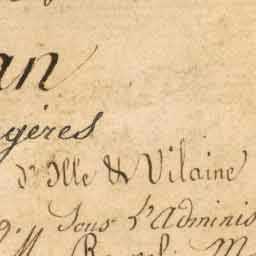 an
gères
d'Ille & Vilaine
Sous l'Adminis